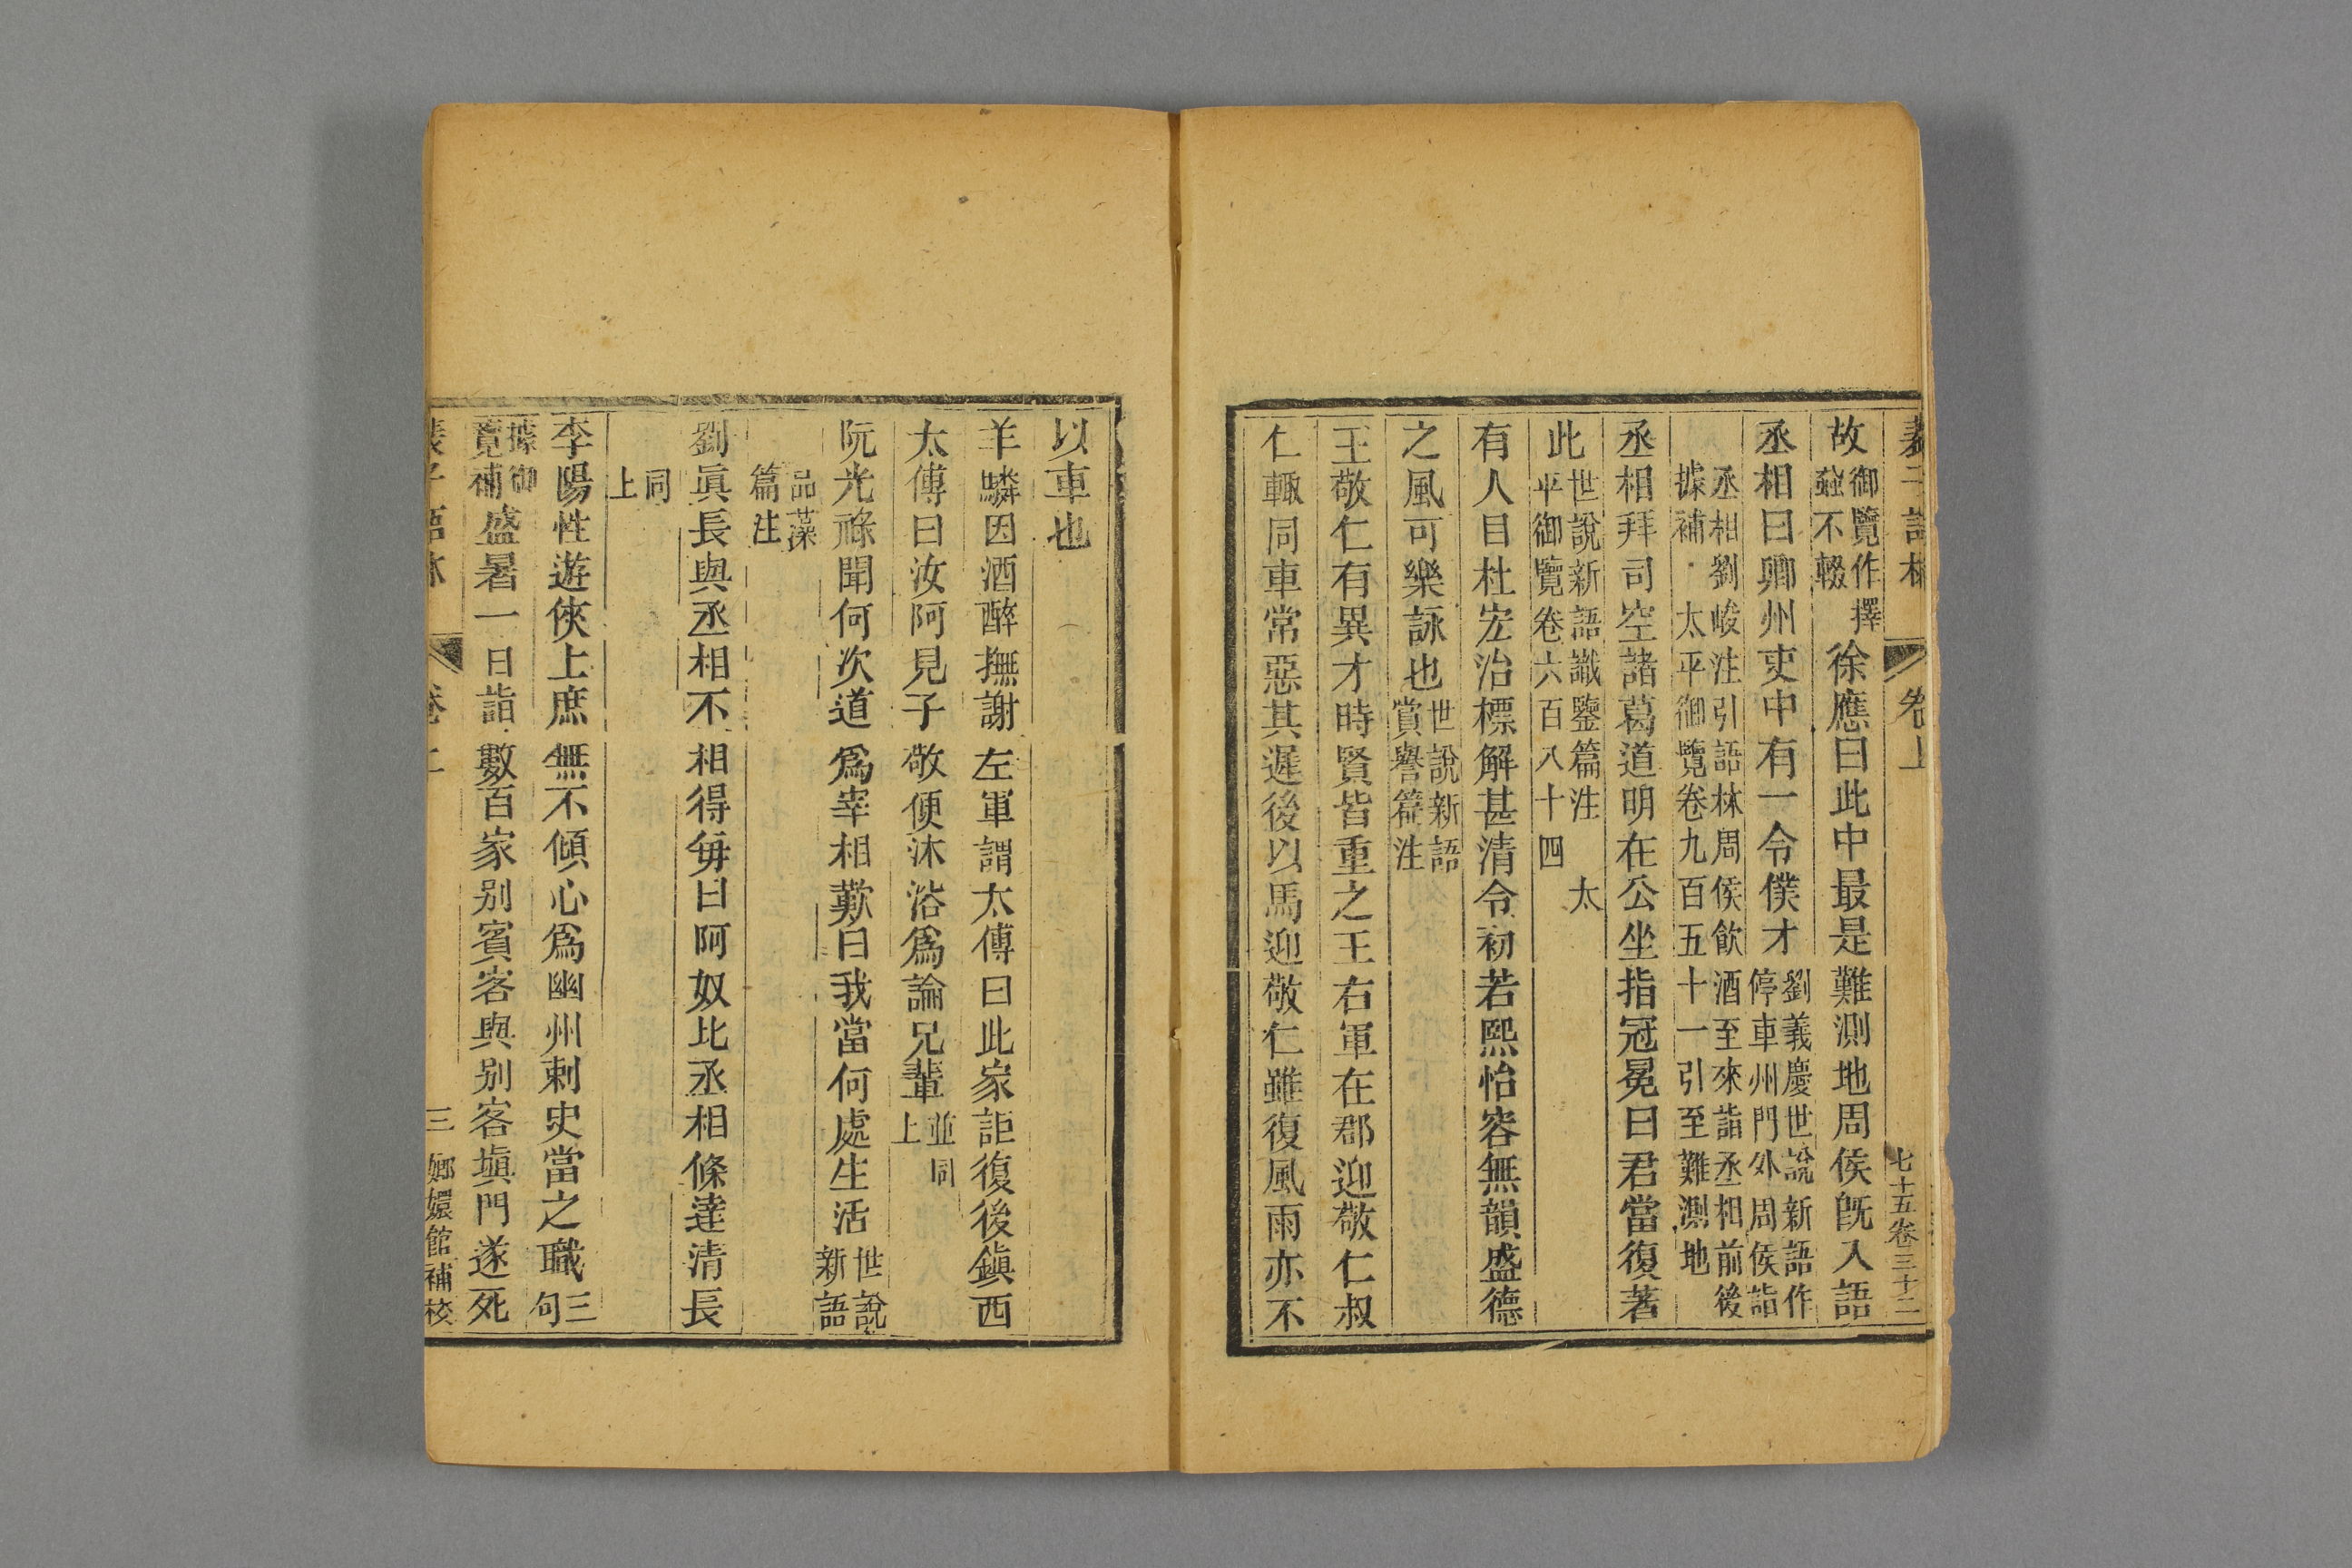 裴子語林 卷上 七十五卷三十二
故御覽作擇蝨不輟徐應曰此中最是難測地周侯旣入語
丞相曰卿州吏中有一令僕才劉義慶世說新語作停車州門外周侯詣
丞相劉峻注引語林周侯飮酒至來詣丞相前後據補太平御覽卷九百五十一引至難測地
丞相拜司空諸葛道明在公坐指冠冕曰君當復著
此世說新語識鑒篇注太平御覽卷六百八十四
有人目杜宏治標解甚清令初若熙怡容無韻盛德
之風可樂詠也世說新語賞譽篇注
王敬仁有異才時賢皆重之王右軍在郡迎敬仁叔
仁輙同車常惡其遲後以馬迎敬仁雖復風雨亦不
以車也
羊驎因酒醉撫謝左軍謂太傅曰此家詎復後鎭西
太傅曰汝阿見子敬便沐浴爲論兄輩並同上
阮光祿聞何次道爲宰相歎曰我當何處生活世說新語
品藻篇注
劉眞長與丞相不相得每曰阿奴比丞相條達清長
同上
李陽性遊俠上庶無不傾心爲幽州刺史當之職三句
據御覽補盛暑一日詣數百家别賓客與别客塡門遂死
裴子語林 卷上 三 嫏嬛館補校